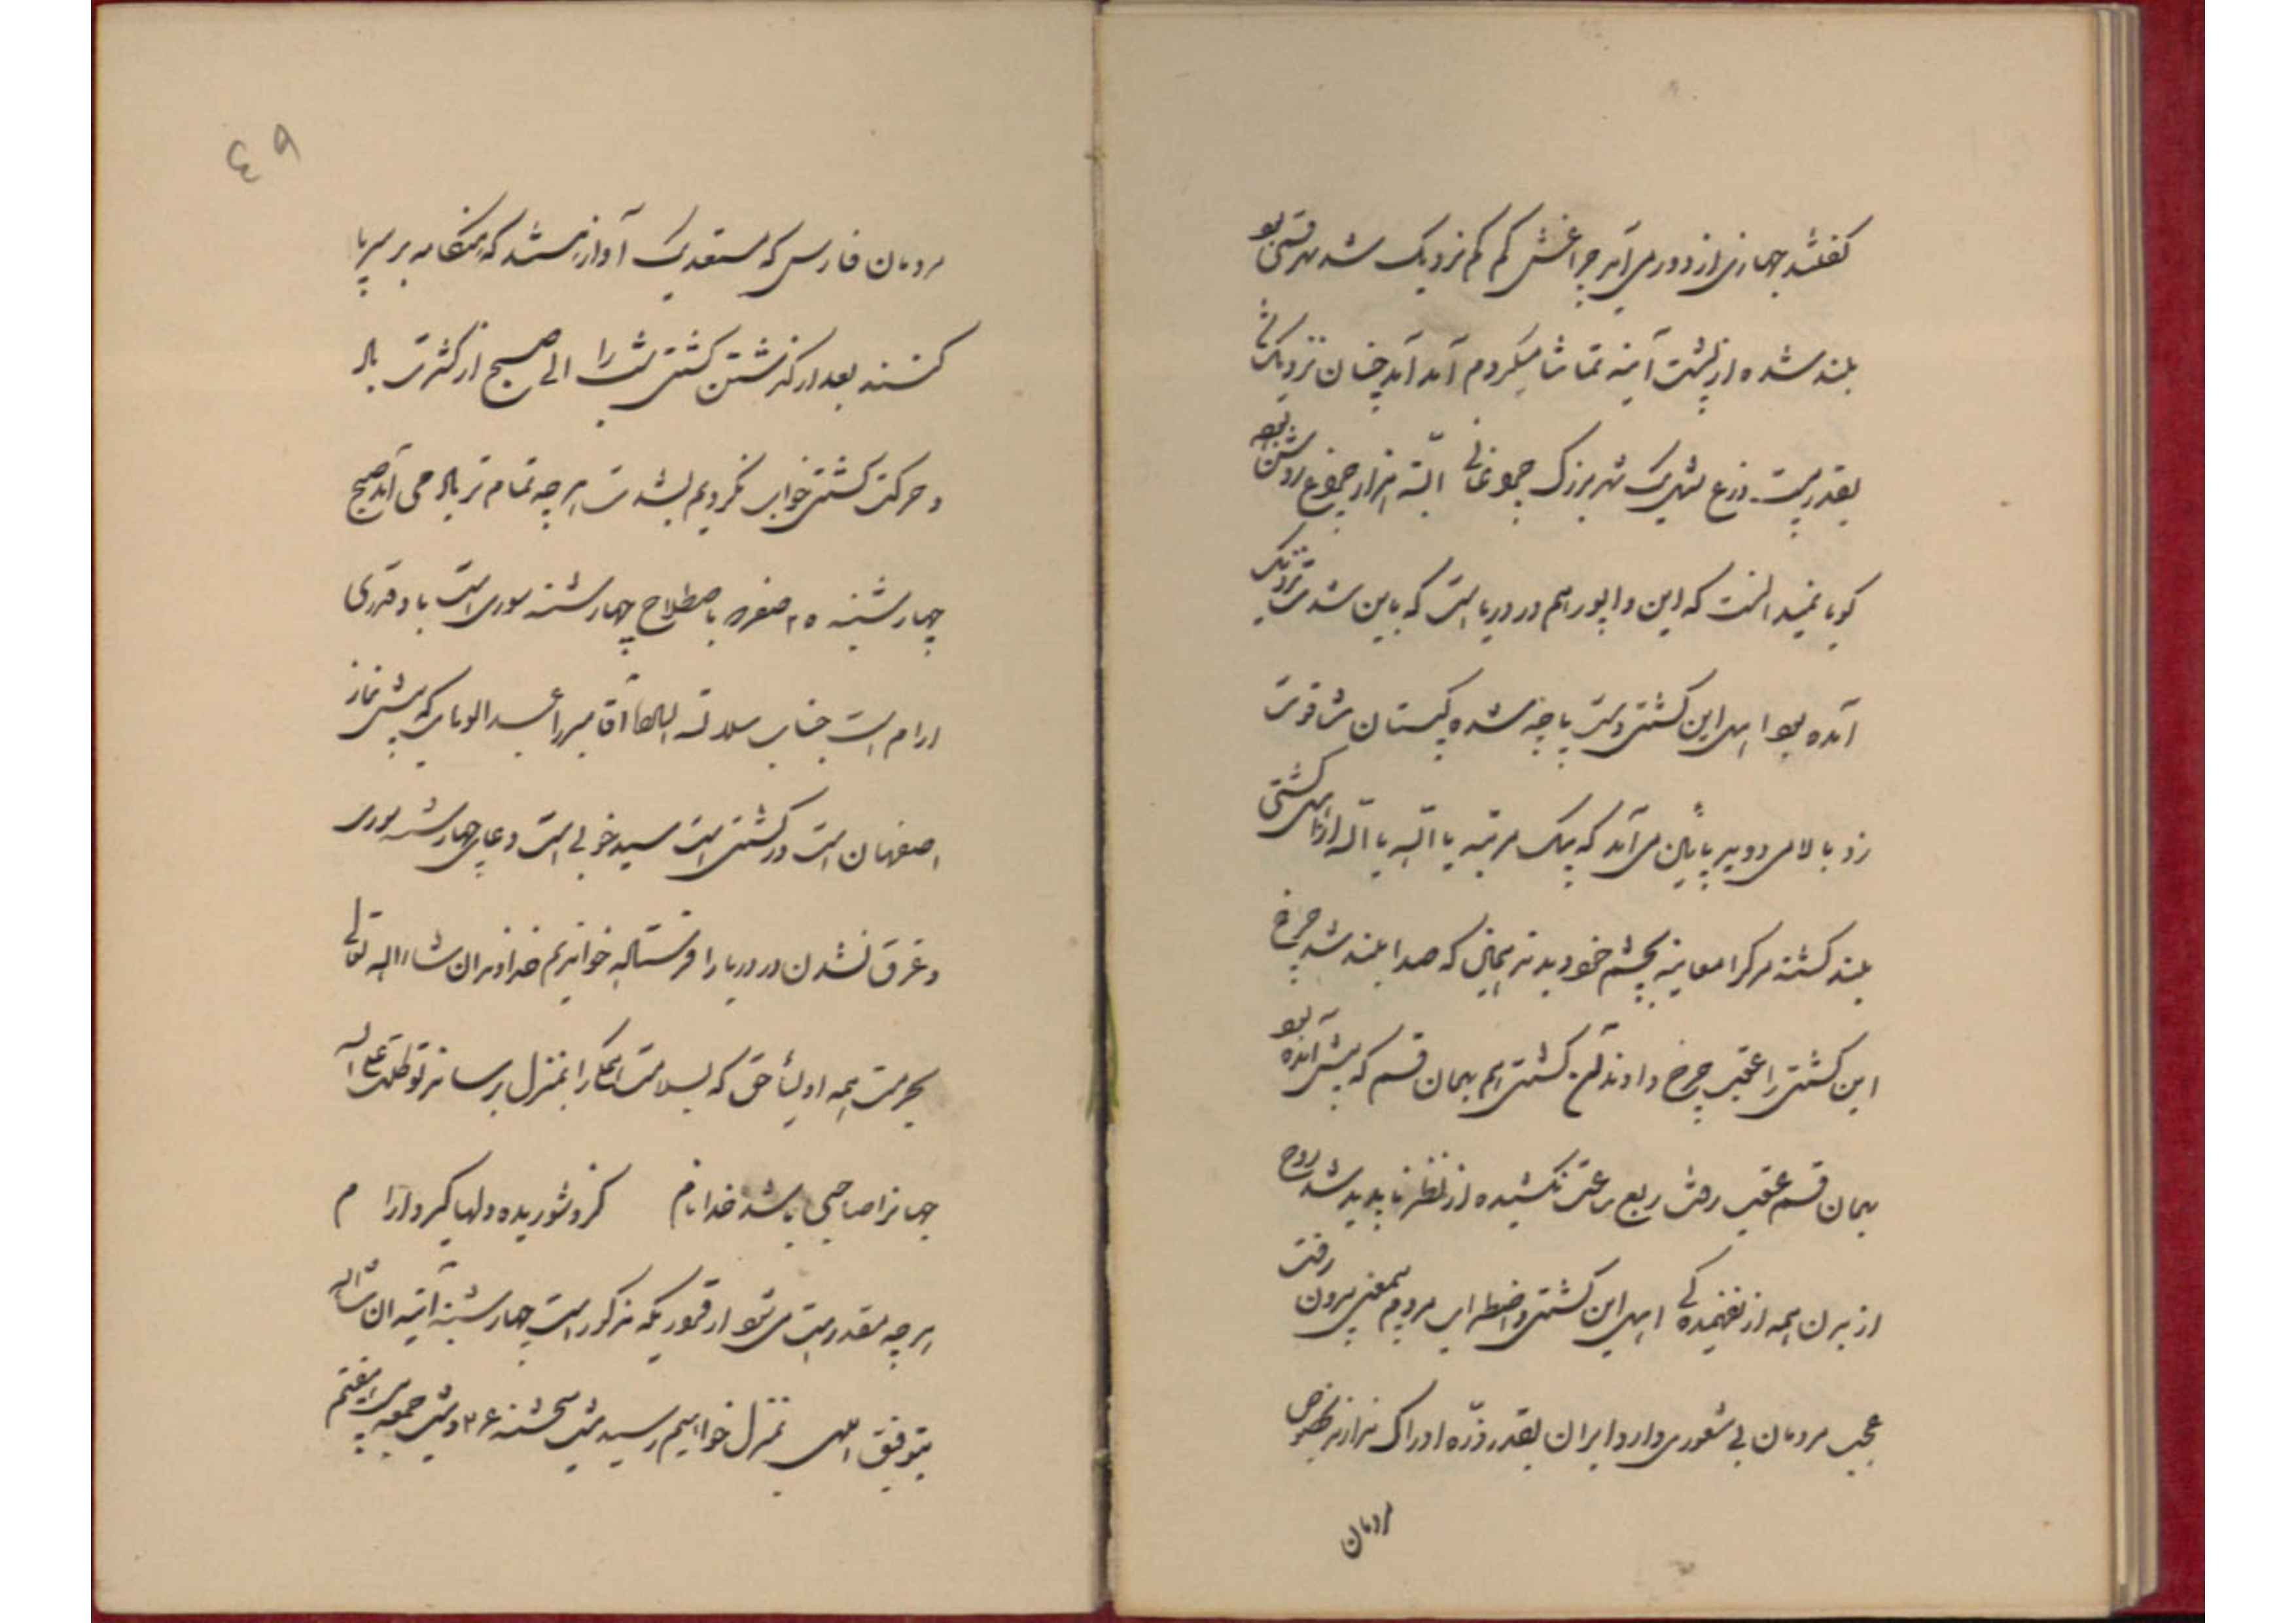 گفتند جهازی از دور می آید چراغش کم کم نزدیک شد مدتی بود
بلند شده از پشت آینه تماشا میکردم آمد آمد چنان نزدیک شد
بقدر بیست ذرع مثل یک شهر بزرگ چراغانی البته هزار چراغ روشن بود
گویا نمیدانست که این واپور هم در دریا است که باین شدت نزدیک
آمده بود اهل این کشتی دست پاچه شده کپیتان شافوت
زد بالا می دوید پائین می آمد که یک مرتبه یا الله یا الله از اهل کشتی
بلند گشته مرگ را معاینه بچشم خود دیدند همان که صدا بلند شد چرخ
این کشتی را عقب چرخ دادند آن کشتی هم بهمان قسم که پیش آمده بود
بهمان قسم عقب رفت ربع ساعت نکشیده از نظر ناپدید شد روح
از بدن همه از نفهمیدگی اهل این کشتی و اضطراب مردم بمعنی بیرون رفت
عجب مردمان بی شعوری دارد ایران بقدر ذره ادراک ندارند بخصوص
مردمان
٤٩
مردمان فارس که مستعد یک آواز هستند که هنگامه بر سر پا
کنند بعد از گذشتن کشتی شب را الی صبح از کثرت باد
و حرکت کشتی خواب نکردیم بشدت هر چه تمام تر باد می آمد صبح
چهارشنبه ۲۵ صفر باصطلاح چهارشنبه سوری است باد قدری
آرام است جناب سلالة السادات آقا میرزا عبدالوهاب که پیش نماز
اصفهان است در کشتی است سید خوبی است دعای چهارشنبه سوری
و غرق نشدن در دریا را فرستاده خواندیم خداوندا ان شاء الله تعالی
بحرمت همه اولیاء حق که بسلامت همگی را بمنزل برساند توکلت علی الله
جهانرا صاحبی باشد خدا نام    کزو شوریده دلها گیرد آرام
هر چه مقدر است می شود از قمور یکه مذکور است چهارشنبه آتیه ان شاء الله
بتوفیق الهی بمنزل خواهیم رسید شب پنجشنبه ۲۶ و شب جمعه بیست و هفتم